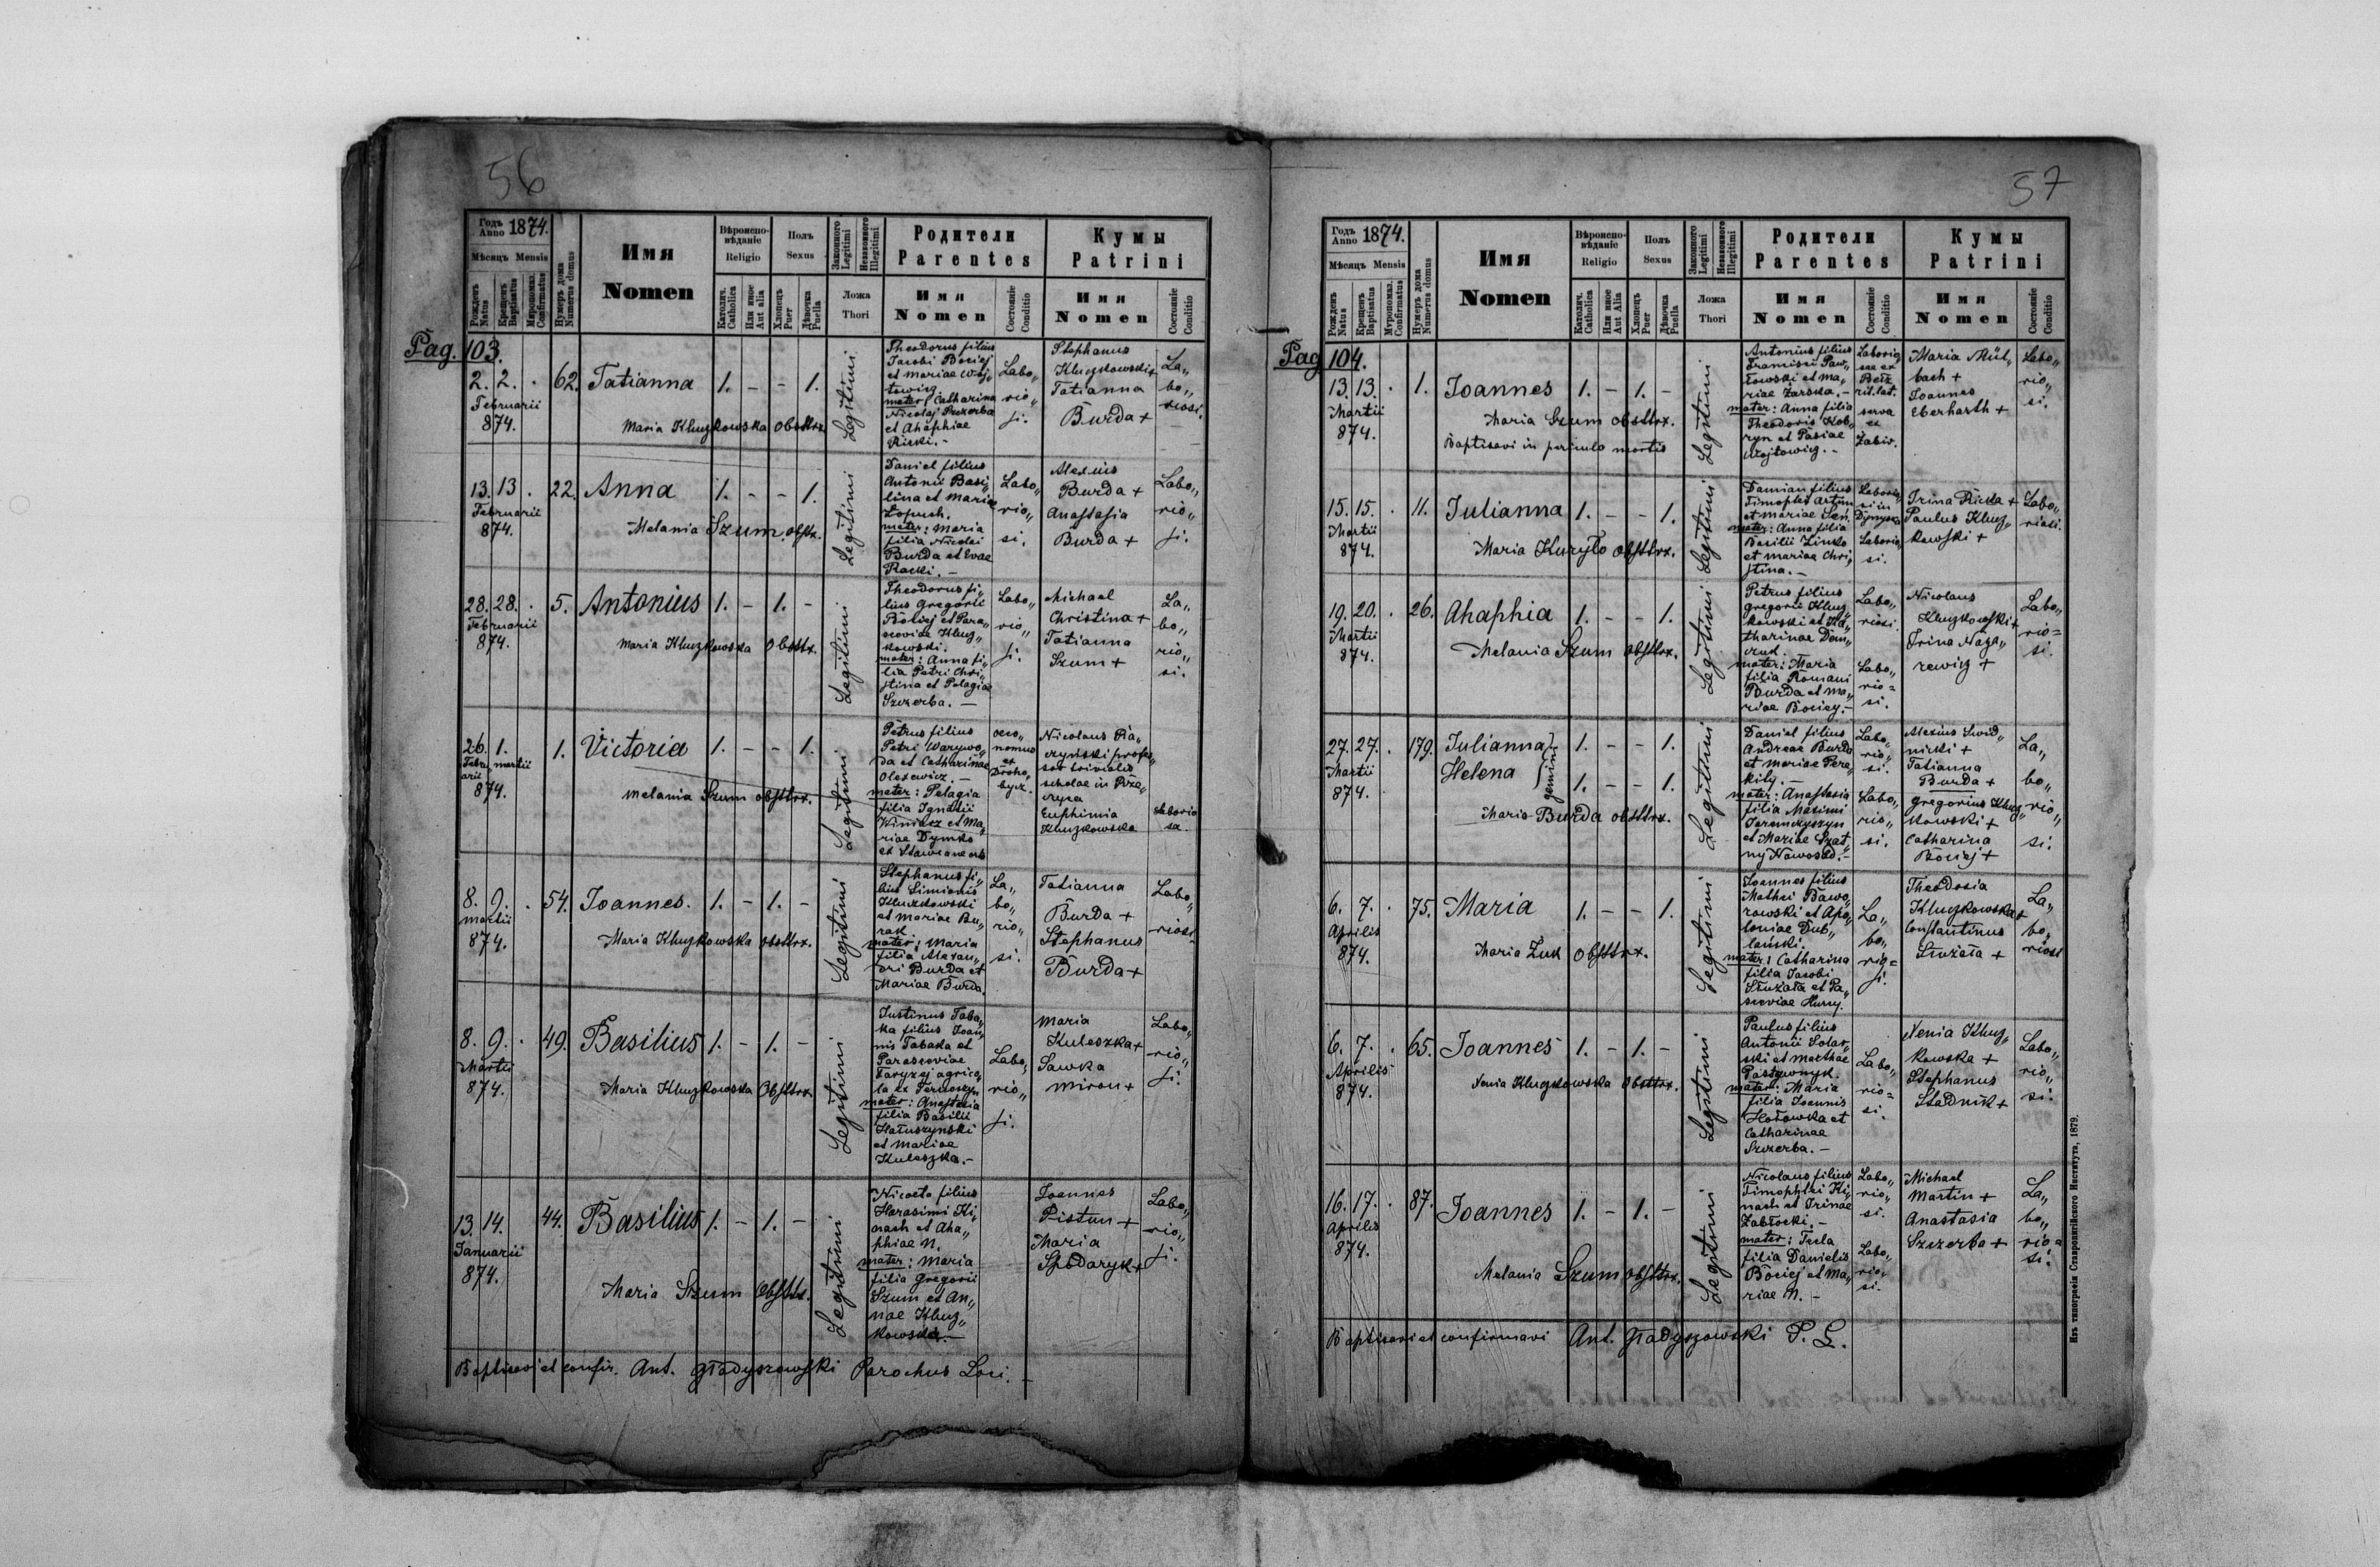 56
Годъ Anno 1874.
Мѣсяцъ Mensis
Рожденъ Natus
Крещенъ Baptisatus
Мѵропомаз. Confirmatus
Нумеръ дома Numerus domus
Имя
Nomen
Вѣроиспо-
вѣданіе
Religio
Католич. Catholica
Или иное Aut alia
Полъ
Sexus
Хлопецъ Puer
Дѣвочка Puella
Законного Legitimi
Незаконного Illegitimi
Ложа
Thori
Родители
Parentes
Имя
Nomen
Состояніе Conditio
Кумы
Patrini
Имя
Nomen
Состояніе Conditio
Pag. 103.
2. 2. . 62. Tatianna 1. - - 1.
Februarii
874.
Maria Kluczkowska obsttrx.
Legitimi
Theodorus filius
Jacobi Bociej
et Mariae Woj„
towicz
mater: Catharina
Nicolaj Szczerba
et Ahaphiae
Ricki. -
Labo„
rio„
si.
Stephanus
Kluczkowski +
Tatianna
Burda +
La„
bo„
riosi.
13. 13 . 22. Anna 1. - - 1.
Februarii
874.
Melania Szum. obsttx.
Legitimi
Daniel filius
Antonii Basi„
lina et Mariae
Łopuch.
mater: Maria
filia Nicolai
Burda et Evae
Racki. -
Labo„
rio„
si.
Alexius
Burda +
Anastasia
Burda +
Labo„
rio„
si.
28. 28. . 5. Antonius 1. - 1. -
Februarii
874.
Maria Kluczkowska Obsttx.
Legitimi
Theodorus fi„
lius Gregorii
Bociej et Para„
sceviae Klucz„
kowski.
mater: Anna fi„
lia Petri Chri„
stina et Pelagiae
Szczerba. -
Labo„
rio„
si.
Michael
Christina +
Tatianna
Szum +
La„
bo„
rio„
si.
26. 1. 1. Victoria 1. - - 1.
Febru„ martii
arii
874.
Melania Szum obsttrx.
Legitimi
Petrus filius
Petri Warywo„
da et Catharinae
Olexewicz. -
mater: Pelagia
filia Ignatii
Winiarz et Ma„
riae Dymko
oeco„
nomus
ex
Droho„
bycz.
Nicolaus
profes„
sor trivialis
scholae in
Euphimia
Kluczkowska
Laborio
sa.
8. 9. . 54. Joannes. 1. - 1. -
Martii
874.
Maria Kluczkowska obsttrx.
Legitimi
Stephanus fi„
lius Simionis
Kluczkowski
et Mariae Bu„
rak
mater: Maria
filia Alexan„
dri Burda et
Mariae Burda.
La„
bo„
rio„
si.
Tatianna
Burda +
Stephanus
Burda +
Labo„
riosi.
8. 9. . 49. Basilius 1. - 1. -
Martii
874.
Maria Kluczkowska Obsttrx.
Legitimi
Justinus Taba„
ka filius Joan„
nis Tabaka et
Parasceviae
agrico„
la ex
mater: Anastasia
filia Basilii
Hałuszynski
et Mariae
Kuleszka. -
Labo„
rio„
si.
Maria
Kuleszka +
Sawka
Miron +
Labo„
rio„
si.
13. 14. 44. Basilius 1. - 1. -
Januarii
874.
Maria Szum Obsttx.
Legitimi
Niceta filius
Harasimi Ki„
nach et Aha„
phiae N.
mater: Maria
filia Gregorii
Szum et An„
nae Klucz„
kowska. -
Joannes
Pistun +
Maria
Spodaryk +
Labo„
rio„
si.
Baptisavi et confir. Ant. Gładyszowski Parochus Loci. -
57
Годъ Anno 1874.
Мѣсяцъ Mensis
Рожденъ Natus
Крещенъ Baptisatus
Мѵропомаз. Confirmatus
Нумеръ дома Numerus domus
Имя
Nomen
Вѣроиспо-
вѣданіе
Religio
Католич. Catholica
Или иное Aut Alia
Полъ
Sexus
Хлопецъ Puer
Дѣвочка Puella
Законного Legitimi
Незаконного Illegitimi
Ложа
Thori
Родители
Parentes
Имя
Nomen
Состояніе Conditio
Кумы
Patrini
Имя
Nomen
Состояніе Conditio
Pag 104.
13. 13. . 1. Joannes 1. - 1. -
Martii
874.
Maria Szum obsttrx.
Baptisavi in periculo mortis
Legitimi
Antonius filius
Francisci Paw„
łowski et Ma„
riae Zarska. -
mater: Anna filia
Theodoris Kob„
ryn et Pasiae
Wojtowicz. -
Laborio„
sae ex
Bełz
rit. lat.
serva
ex
Żabie.
Maria Mül„
bach +
Joannes
Eberharth +
Labo„
rio„
si.
15. 15. . 11. Julianna 1. - - 1.
Martii
874.
Maria Kuryło obsttrx.
Legitimi
Damian filius
et Mariae Sen.
mater: Anna filia
Basilii Zinko
et Mariae Chri„
stina. -
Laborio„
si in
Dynyska
Laborio„
si.
Irina Ricka +
Paulus Klucz„
kowski +
Labo„
riosi.
19. 20. . 26. Ahaphia 1. - - 1.
Martii
874.
Melania Szum obsttrx.
Legitimi
Petrus filius
Gregorii Klucz„
kowski et Ka„
tharinae Dem„
czuk.
mater: Maria
filia Romani
Burda et Ma„
riae Bociej. -
Labo„
riosi.
Labo„
rio=
si.
Nicolaus
Kluczkowski +
Irina Naza„
rewicz +
Labo„
rio=
si.
27. 27. . 179. Julianna 1. - - 1.
Martii
874.
Helena 1. - - 1.
gemini
Maria Burda obsttrx.
Legitimi
Daniel filius
Andreae Burda
et Mariae Pere„
kity. -
mater: Anastasia
filia Maximi
et Mariae Szat„
ny Nowosad. -
Labo„
rio„
si.
Labo„
rio„
si.
Alexius Swid„
nicki +
Tatianna
Burda +
Gregorius Klucz„
kowski +
Catharina
Bociej +
La„
bo„
rio„
si.
6. 7. . 75. Maria 1. - - 1.
Aprilis
874.
Maria Żuk obsttrx.
Legitimi
Joannes filius
Mathei Bawo„
rowski et Apo„
loniae Dub„
lański.
mater: Catharina
filia Jacobi
Słuzała et Pa„
sceviae Huny.
La„
bo„
rio=
si.
Theodosia
Kluczkowska +
Constantinus
Słuzała +
La„
bo„
riosi
6. 7. . 65. Joannes 1. - 1. -
Aprilis
874.
Xenia Kluczkowska obsttrx.
Legitimi
Paulus filius
Antonii Solar„
ski et Marthae
Pastewnyk.
mater: Maria
filia Joannis
Hołowka et
Catharinae
Szczerba. -
Labo„
rio=
si.
Xenia Klucz„
kowska +
Stephanus
Stadnik +
Labo„
rio„
si.
16. 17. . 87. Joannes 1. - 1. -
Aprilis
874.
Melania Szum obsttrx.
Legitimi
Nicolaus filius
Timophtei Ki„
nach et Irinae
Zabłocki. -
mater: Tecla
filia Danielis
Bociej et Ma„
riae N. -
Labo„
rio„
si.
Labo„
rio„
si.
Michael
Martin +
Anastasia
Szczerba +
La„
bo„
rio=
si.
Baptisavi et confirmavi Ant. Gładyszowski P. L.
Изъ типографіи Ставропигійского Института, 1879.